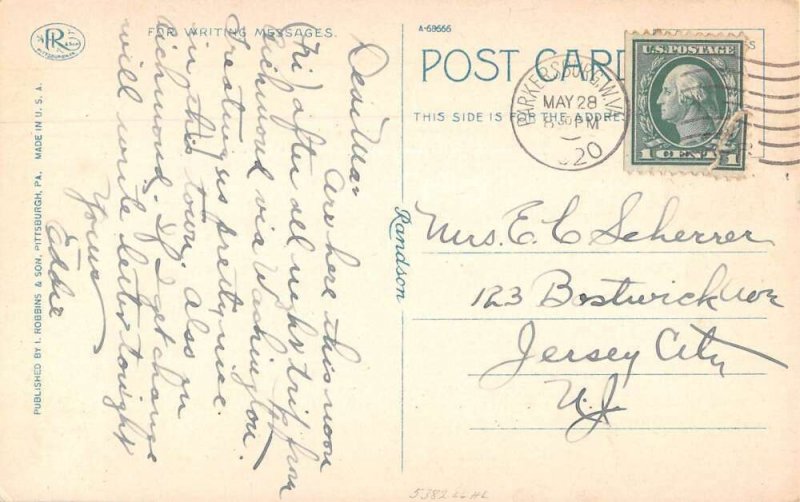 FOR WRITING MESSAGES.
Dear Ma:
Are here this noon
(Fri) after all night trip from
Richmond via Washington.
Treating us pretty nice
in this town. Also in
Richmond. If I get change
will write letter tonight
Yours
Eddie
R
PITTSBURGH PA.
PUBLISHED BY I. ROBBINS & SON, PITTSBURGH, PA. MADE IN U.S.A.
A-68666
POST CARD
THIS SIDE IS FOR THE ADDRESS
U.S. POSTAGE
1 CENT 1
PARKERSBURG W.VA.
MAY 28
8 30 PM
1920
Randson
Mrs. E. C. Scherrer
123 Bostwick Ave
Jersey City
N.J.